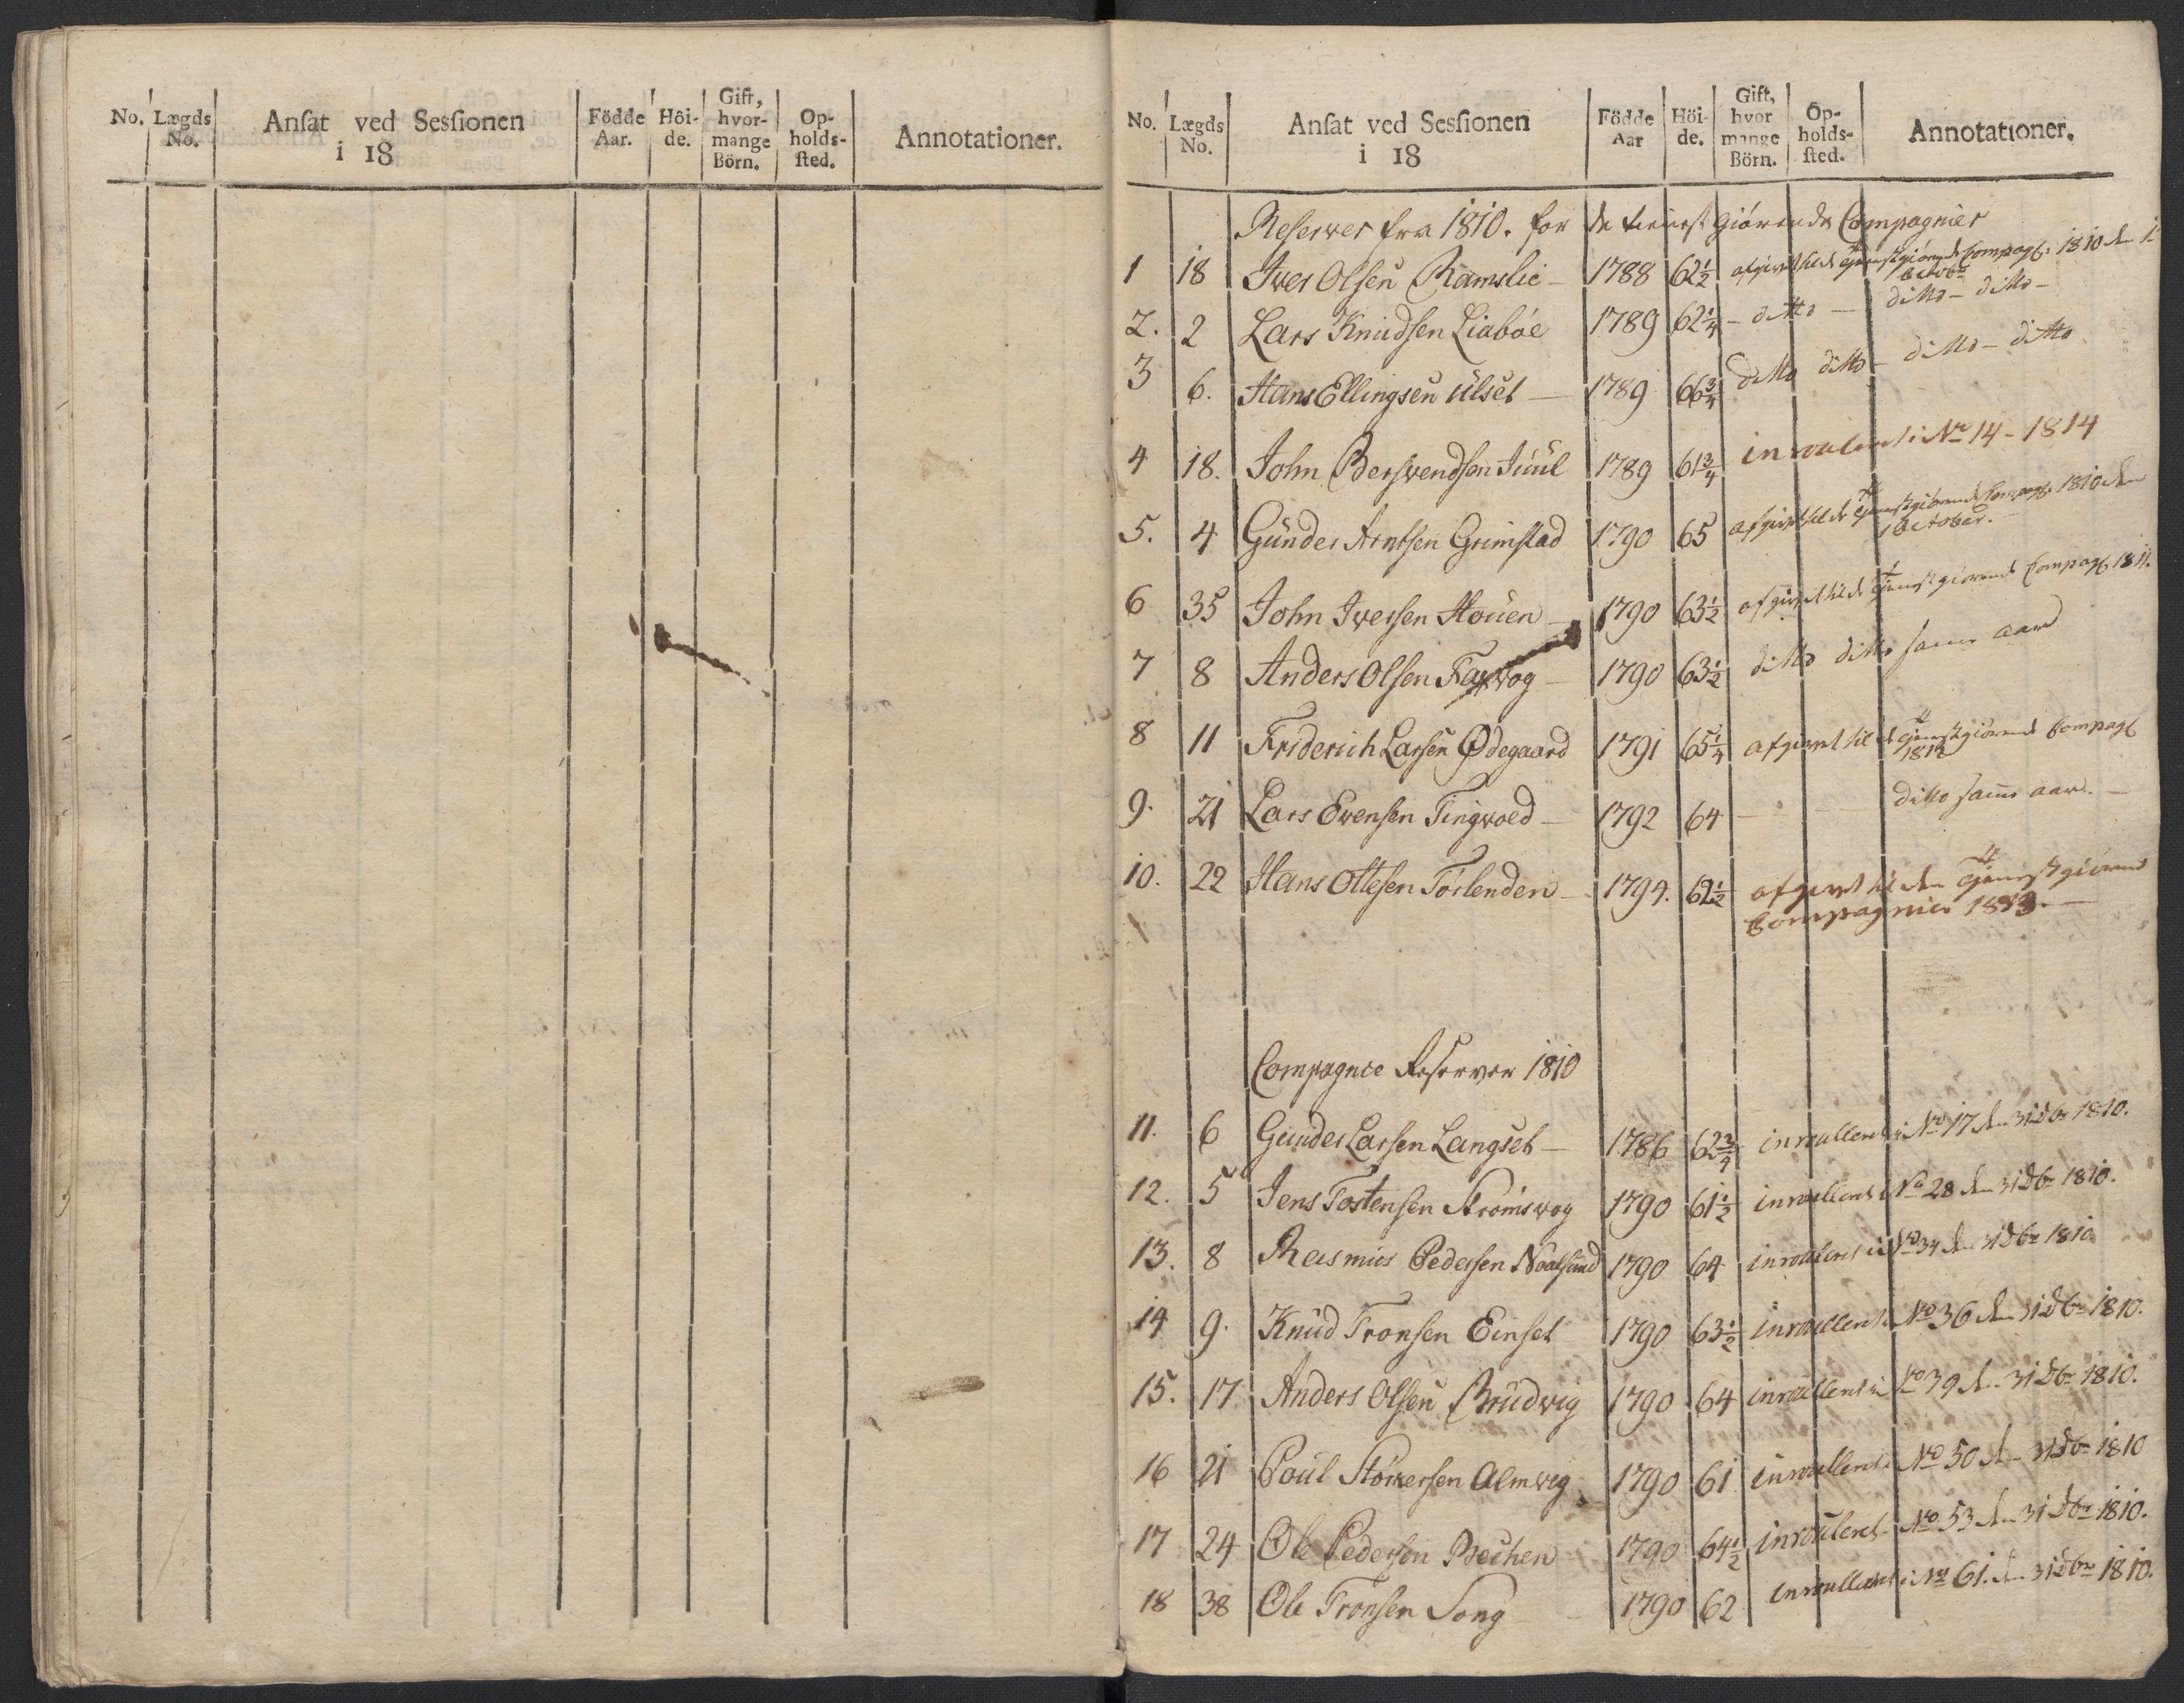 No. Lægds No. Ansat ved Sessionen i 18 Födde Aar. Höide. Gift, hvormange Börn. Opholdssted. Annotationer.
No. Lægds No. Ansat ved Sessionen i 18 Födde Aar Höide. Gift, hvor mange Börn. Opholdssted. Annotationer.
Reserver fra 1810. for de tienestgiörende Compagnier
1 18 Iver Olsen Ramslie 1788 62½ afgivet til de 4 tjenestgiörende Compagℓ. 1810 den 1 October
2. 2 Lars Knudsen Liaböe 1789 62¼ - ditto - ditto - ditto -
3 6. Hans Ellingsen Ulset 1789 66¾ ditto ditto - ditto - ditto
4 18. John Berswendsen Juul 1789 61¾ inroulert i No 14 - 1814
5. 4 Gunder Arntsen Grimstad 1790 65 afgivet til de 4 tjenestgiörende Compagℓ. 1810 den 1 October.
6 35 John Iversen Houen 1790 63½ afgivet til de 4 tjenestgiörende Compagℓ. 1811.
7 8 Anders Olsen 1790 63½ ditto ditto samme aar
8 11 Friderich Larsen Ødegaard 1791 65¼ afgivet til de 4 tjenestgiörende Compagℓ 1812
9. 21 Lars Evensen Tingvoed 1792 64 - ditto samme aar. -
10. 22 Hans Ottesen Törlenden 1794. 62½ afgivet til den 4 tjenestgiörende
Compagnier 1813.
Compagnie Reserver 1810
11. 6 Gunder Larsen Langset 1786 62¾ inroullert i No 17 den 31 Dbr 1810.
12. 5 Jens Tostensen Strömsvog 1790 61½ inroullert i No 28 den 31 Dbr 1810.
13. 8 Rasmus Pedersen Naalsund 1790 64 inroullert i No 34 den 31 Dbr 1810
14 9. Knud Tronsen Einset 1790 63½ inroullert i No 36 den 31 Dbr 1810.
15. 17 Anders Olsen Brudwig 1790 64 inroullert i No 39 den 31 Dbr 1810.
16 21 Poul Störkersen Almvig 1790 61 inroullert i No 50 den 31 Dbr 1810
17 24 Ole Pedersen Bechen 1790 64½ inroulert No 53 den 31 Dbr 1810.
18 38 Ole Tronsen Song 1790 62 inroullert i No 61. den 31 Dbr 1810.